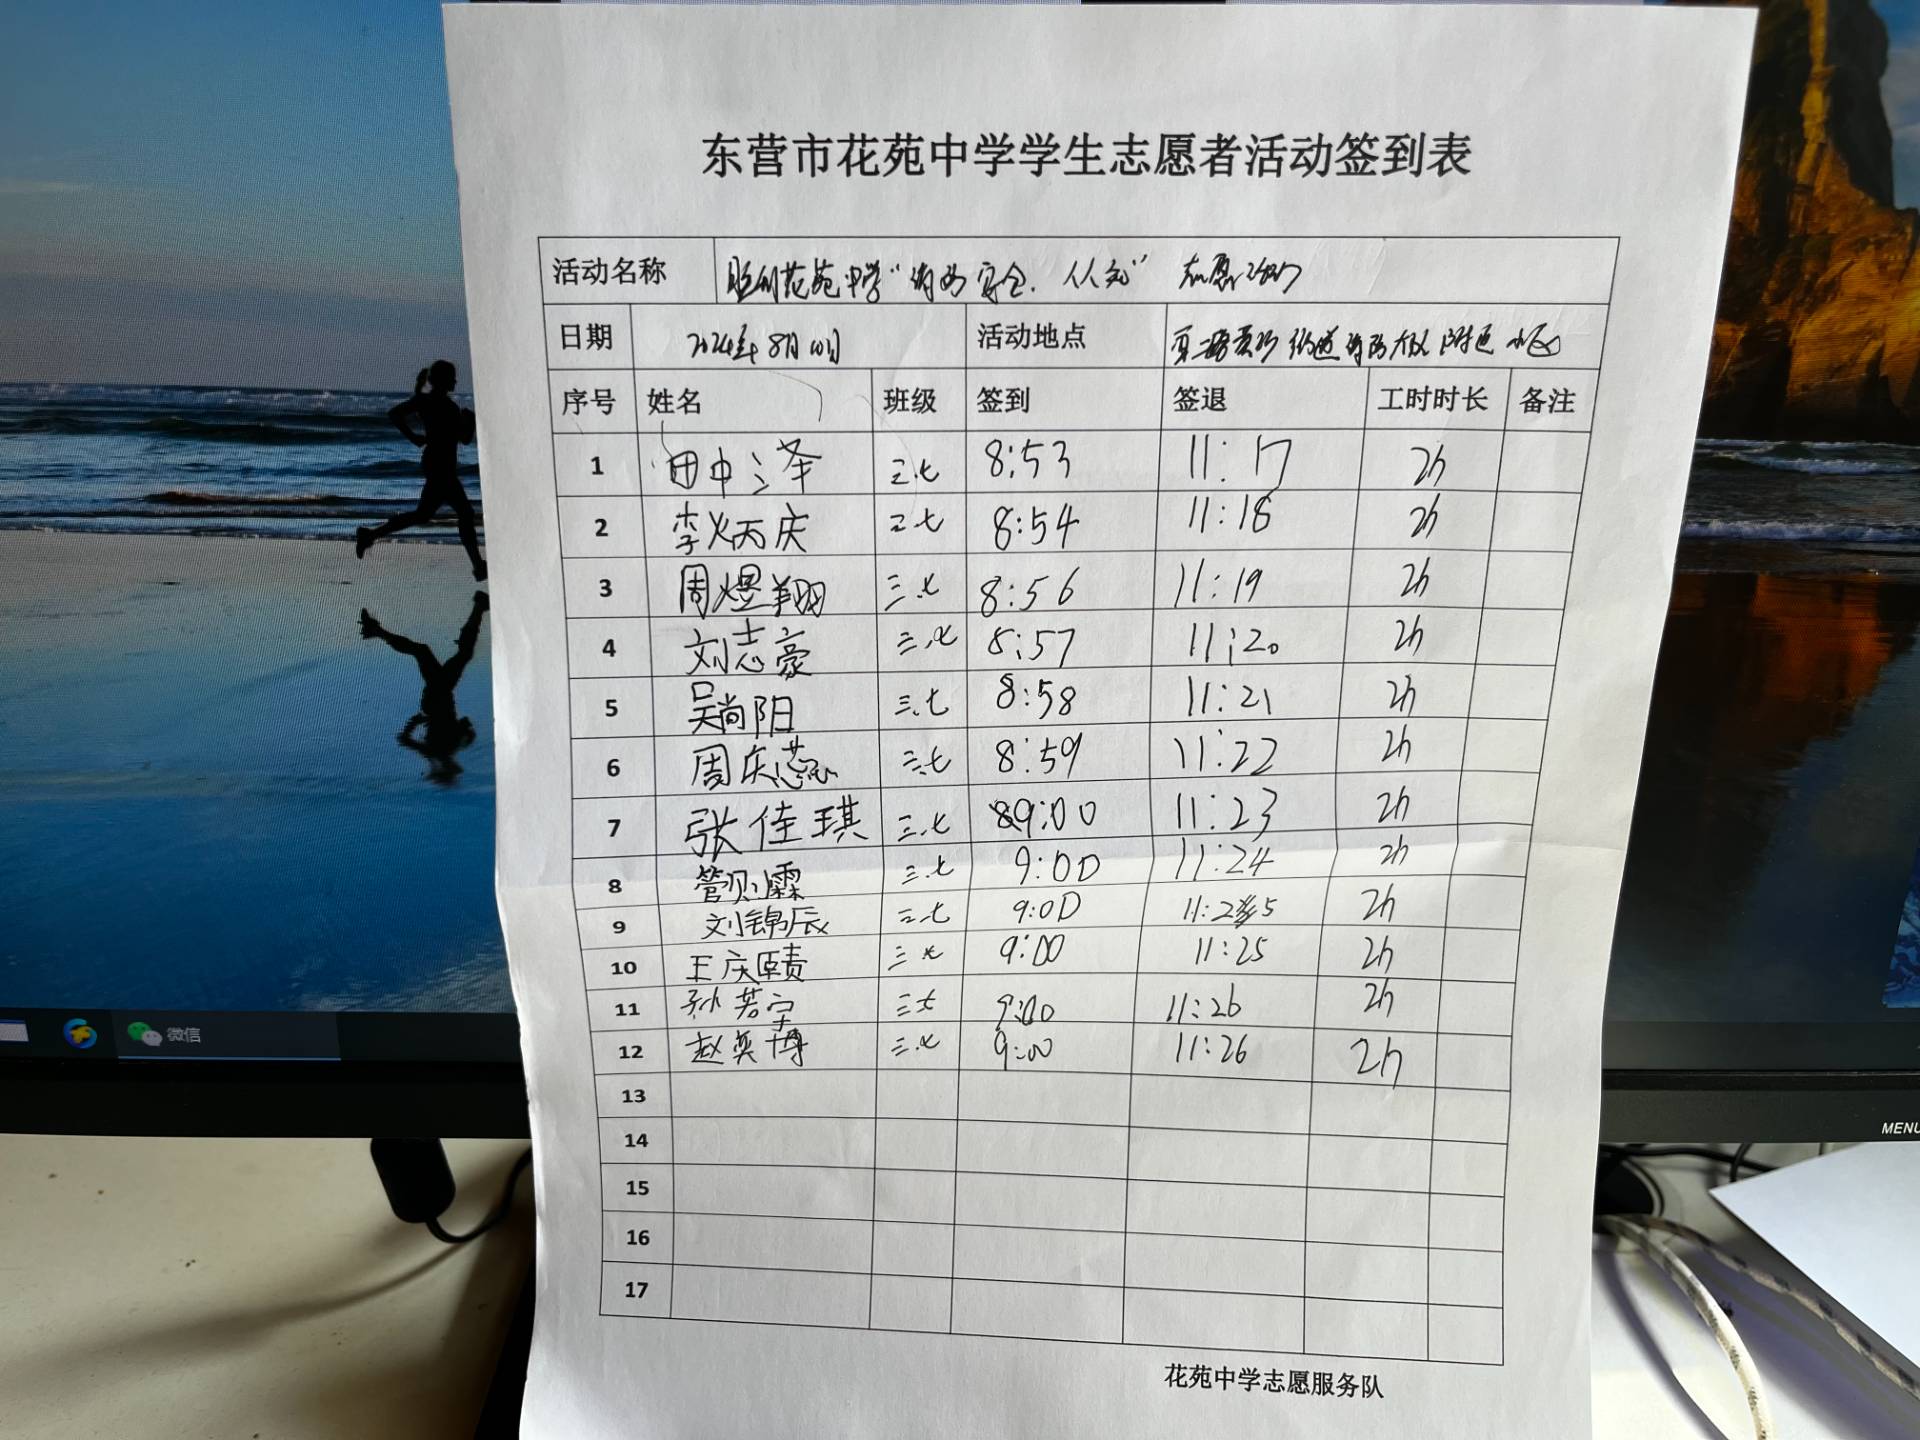 东营市花苑中学学生志愿者活动签到表
活动名称 花苑中学“消防安全，人人”志愿
日期 2024年8月10日 活动地点 消防大队附近小区
序号 姓名 班级 签到 签退 工时时长 备注
1 田中泽 三.七 8:53 11:17 2h
2 李炳庆 三七 8:54 11:18 2h
3 周煜翔 三.七 8:56 11:19 2h
4 刘志豪 三.七 8:57 11:20 2h
5 吴尚阳 三.七 8:58 11:21 2h
6 周庆蕊 三.七 8:59 11:22 2h
7 张佳琪 三.七 9:00 11:23 2h
8 管则霖 三.七 9:00 11:24 2h
9 刘锦辰 三.七 9:00 11:25 2h
10 王庆赜 三七 9:00 11:25 2h
11 孙若宁 三七 9:00 11:26 2h
12 赵奕博 三.七 9:00 11:26 2h
13
14
15
16
17
花苑中学志愿服务队
微信
MENU